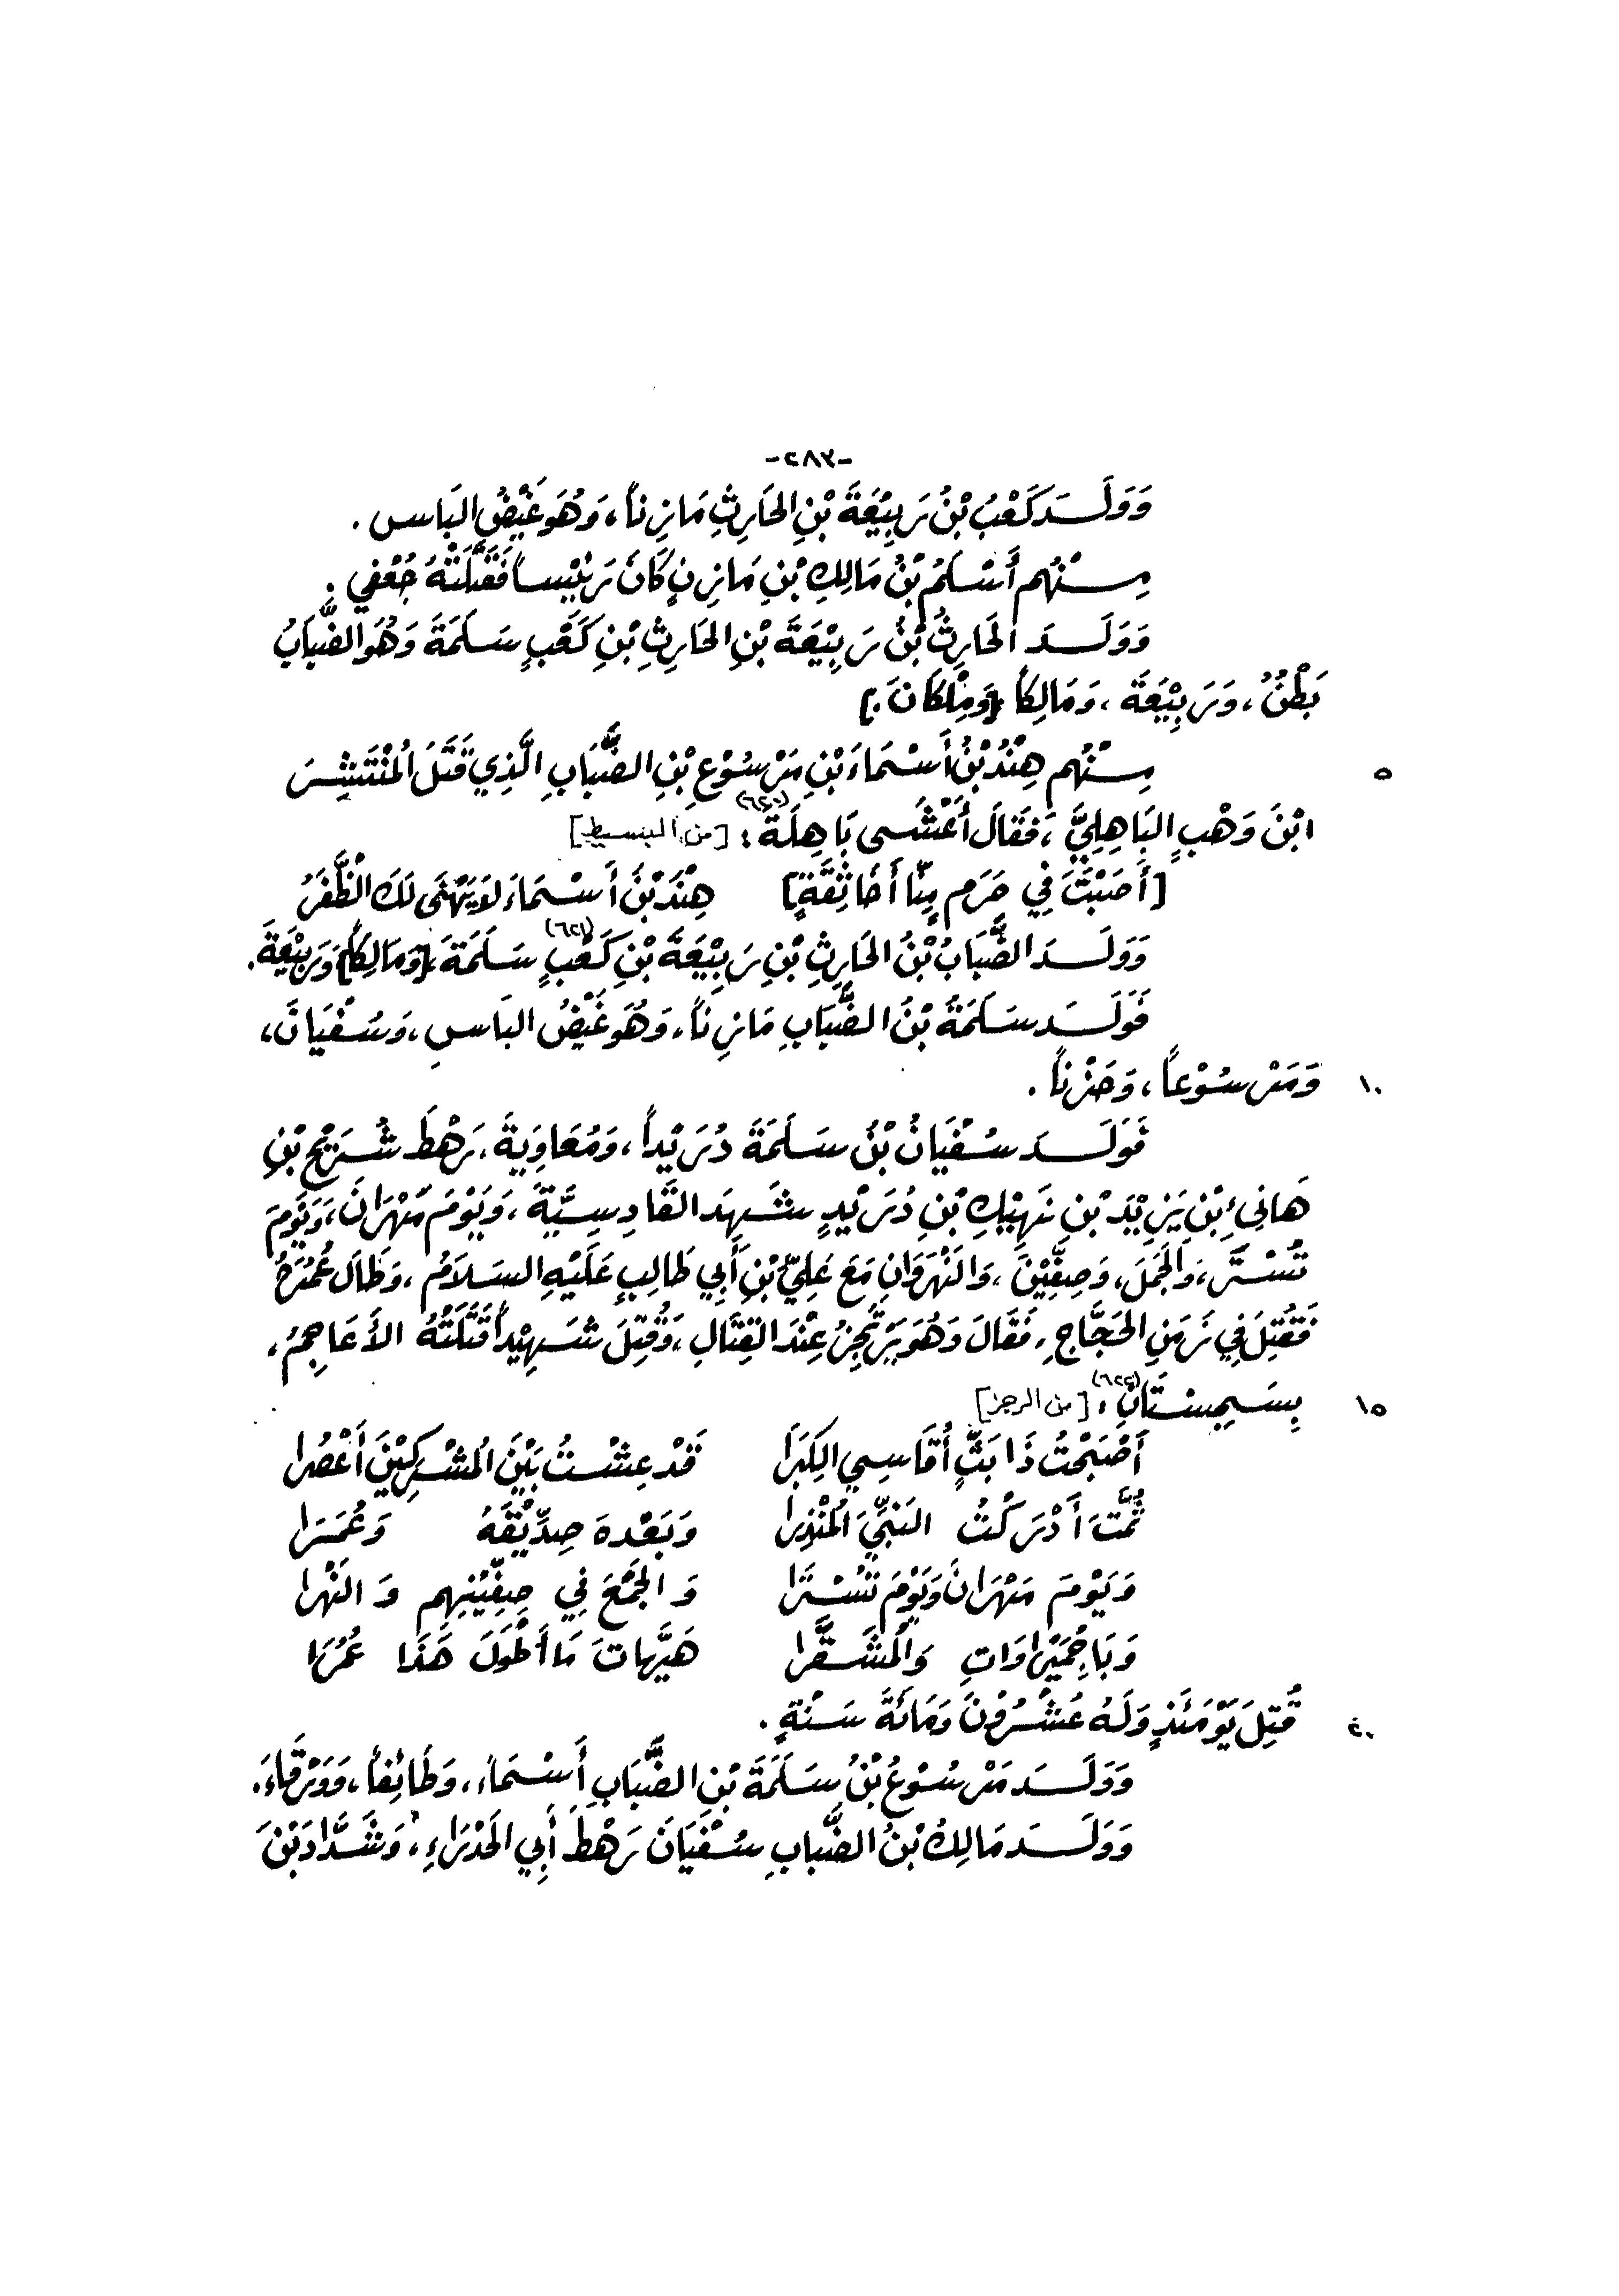 -٢٨٢-
وَوَلَدَ كَعْبُ بْنُ رَبِيْعَةَ بْنِ الحَارِثِ مَازِناً، وَهُوَ غَيْضُ البَاسِ .
مِنْهُم أَسْلَمُ بْنُ مَالِكِ بْنِ مَازِنٍ كَانَ رَئِيْساً فَقَتَلَتْهُ جُعْفِي .
وَوَلَدَ الحَارِثُ بْنُ رَبِيْعَةَ بْنِ الحَارِثِ بْنِ كَعْبٍ سَلَمَةَ وَهُوَ الضِّبَابُ
بَطْنٌ، وَرَبِيْعَةَ، وَمَالِكاً [وَمِلْكَانَ.]
٥ مِنْهُم هِنْدُ بْنُ أَسْمَاءَ بْنِ مَرْسُوْعِ بْنِ الضِّبَابِ الَّذِي قَتَلَ المُنْتَشِرَ
ابْنَ وَهْبٍ البَاهِلِيَّ، فَقَالَ أَعْشَى بَاهِلَةَ(٦٢٠): [من البسيط]
[أَصَبْتَ فِي حَرَمٍ مِنَّا أَخَا ثِقَةٍ] هِنْدَ بْنَ أَسْمَاءَ لَا يَهْنَى لَكَ الظَّفَرُ
وَوَلَدَ الضِّبَابُ بْنُ الحَارِثِ بْنِ رَبِيْعَةَ بْنِ كَعْبٍ(٦٢١) سَلَمَةَ، [وَمَالِكاً] وَرَبِيْعَةَ.
فَوَلَدَ سَلَمَةُ بْنُ الضِّبَابِ مَازِناً، وَهُوَ غَيْضُ البَاسِ، وَسُفْيَانَ،
١٠ وَمَرْسُوْعاً، وَحَزْناً .
فَوَلَدَ سُفْيَانُ بْنُ سَلَمَةَ دُرَيْداً، وَمُعَاوِيَةَ، رَهْطَ شُرَيْحِ بْنِ
هَانِئِ بْنِ يَزِيْدَ بْنِ نَهِيْكِ بْنِ دُرَيْدٍ شَهِدَ القَادِسِيَّةَ، وَيَوْمَ مَهْرَانَ، وَيَوْمَ
تُسْتَرَ، وَالجَمَلَ، وَصِفِّيْنَ، وَالنَهْرَوَانَ مَعَ عَلِيِّ بْنِ أَبِي طَالِبٍ عَلَيْهِ السَلَامُ، وَطَالَ عُمُرُهُ
فَقُتِلَ فِي زَمَنِ الحَجَّاجِ، فَقَالَ وَهُوَ يَرْتَجِزُ عِنْدَ القِتَالِ، وَقُتِلَ شَهِيْداً قَتَلَتْهُ الأَعَاجِمُ،
١٥ بِسَجِسْتَانَ(٦٢٢): [من الرجز]
أَصْبَحْتُ ذَا بَثٍّ أُقَاسِي الكِبَرَا قَدْ عِشْتُ بَيْنَ المُشْرِكِيْنَ أَعْصُرا
ثُمَّتَ أَدْرَكْتُ النَبِيَّ المُنْذِرا وَبَعْدهَ صِدِّيْقَهُ وَعُمَرَا
وَيَوْمَ مَهْرَانَ وَيَوْمَ تُسْتَرَا وَالجَمْعَ فِي صِفِّيْنِهِم وَالنَهْرا
وَبَاجُمَيْرَاوَاتِ وَالمُشَقَّرا هَيْهَاتَ مَا أَطْوَلَ هَذَا عُمُرَا
٢٠ قُتِلَ يَوْمَئَذٍ وَلَهُ عُشْرُوْنَ وَمَائَةَ سَنْةٍ .
وَوَلَدَ مَرْسُوْعُ بْنُ سَلَمَةَ بْنِ الضِّبَابِ أَسْمَاءَ، وَطَائِفاً، وَوَرْقَاءَ.
وَوَلَدَ مَالِكُ بْنُ الضِّبابِ سُفْيَانَ رَهْطَ أَبِي الحَدْرَاءِ، وَشَدَّادَ بْنَ